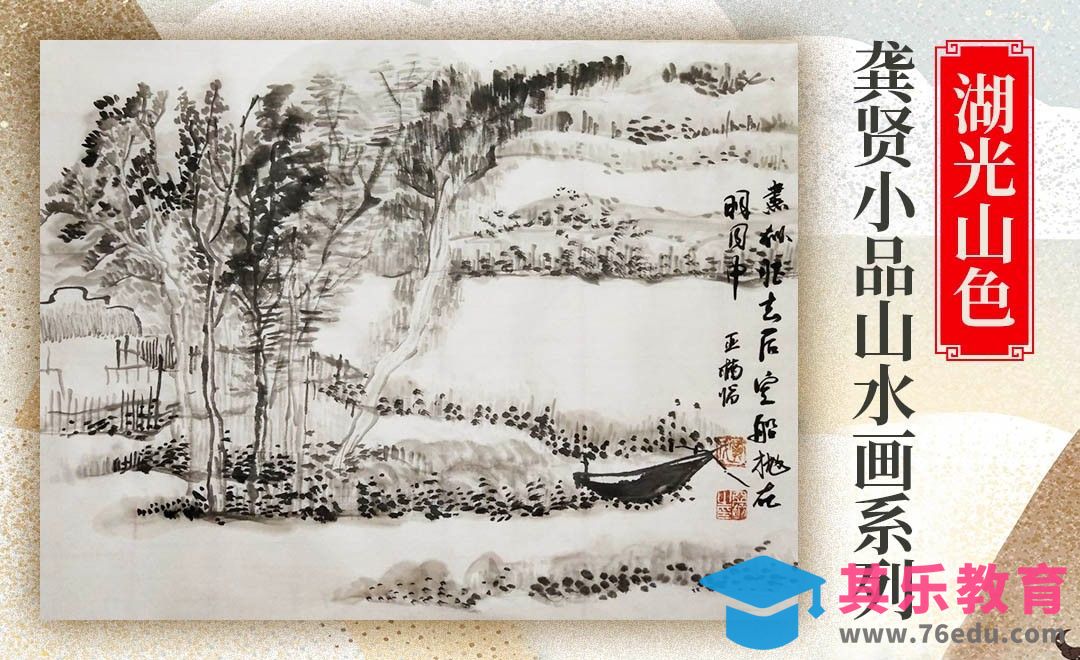 湖光山色
龚贤小品山水画系列
去后空船抛在
明月中
亚楠临
其乐教育
www.76edu.com